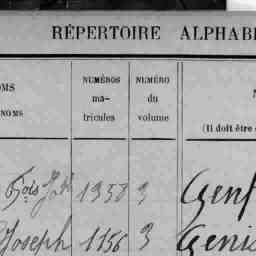 RÉPERTOIRE ALPHAB
OMS
NOMS
NUMÉROS
ma-
tricules
NUMÉRO
du
volume
N
(Il doit être
Fçois Jh 1358 3 Genf
Joseph 1156 3 Genis